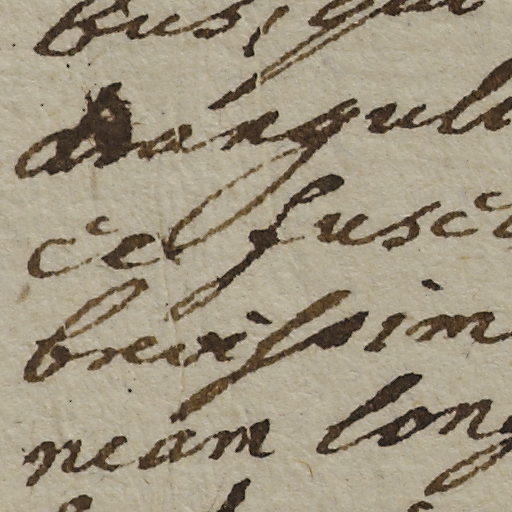 bus, qui
drangulu
cel fusce
brevissim
neam long